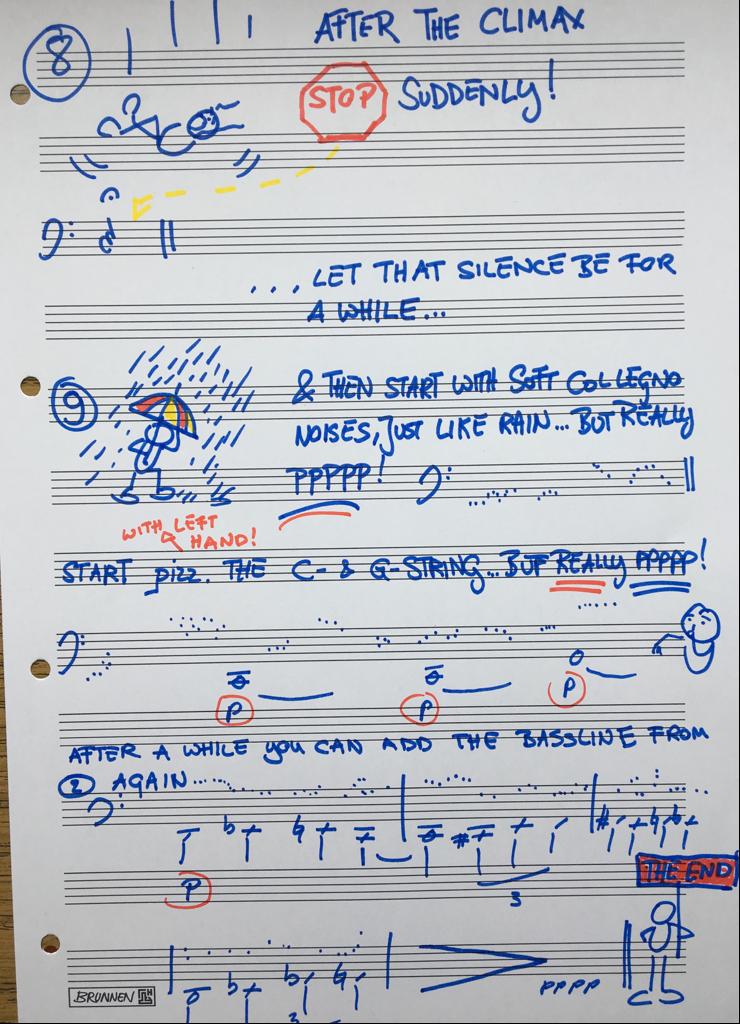 8 AFTER THE CLIMAX
STOP SUDDENLY!
...LET THAT SILENCE BE FOR
A WHILE...
9 & THEN START WITH SOFT COL LEGNO
NOISES, JUST LIKE RAIN... BUT REALLY
PPPPP!
WITH LEFT
HAND!
START pizz. THE C- & G-STRING... BUT REALLY PPPPP!
P P P
AFTER A WHILE YOU CAN ADD THE BASSLINE FROM
2 AGAIN...
P
3
THE END
PPPP
3
BRUNNEN